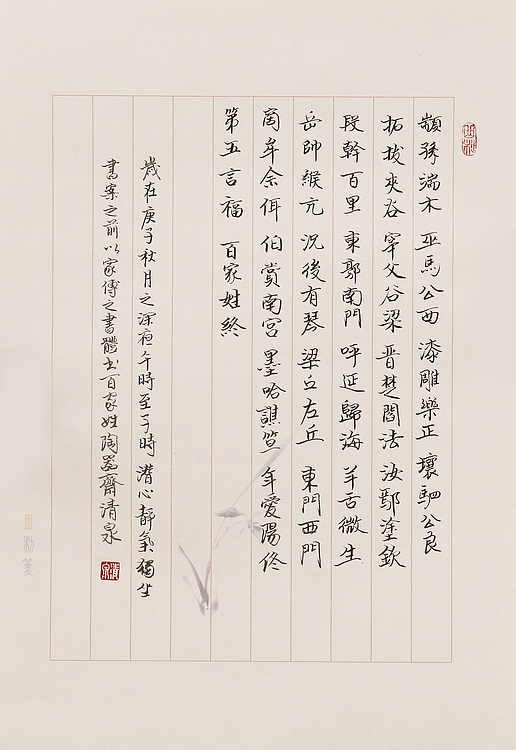 顓孫端木 巫馬公西 漆雕樂正 壤駟公良
拓拔夾谷 宰父谷梁 晉楚閻法 汝鄢塗欽
段幹百里 東郭南門 呼延歸海 羊舌微生
岳帥緱亢 況後有琴 梁丘左丘 東門西門
商牟佘佴 伯賞南宮 墨哈譙笪 年愛陽佟
第五言福 百家姓終
歲在庚子秋月之深夜午時至子時潛心靜氣獨坐
書案之前以家傳之書體書百家姓陶 齋清泉